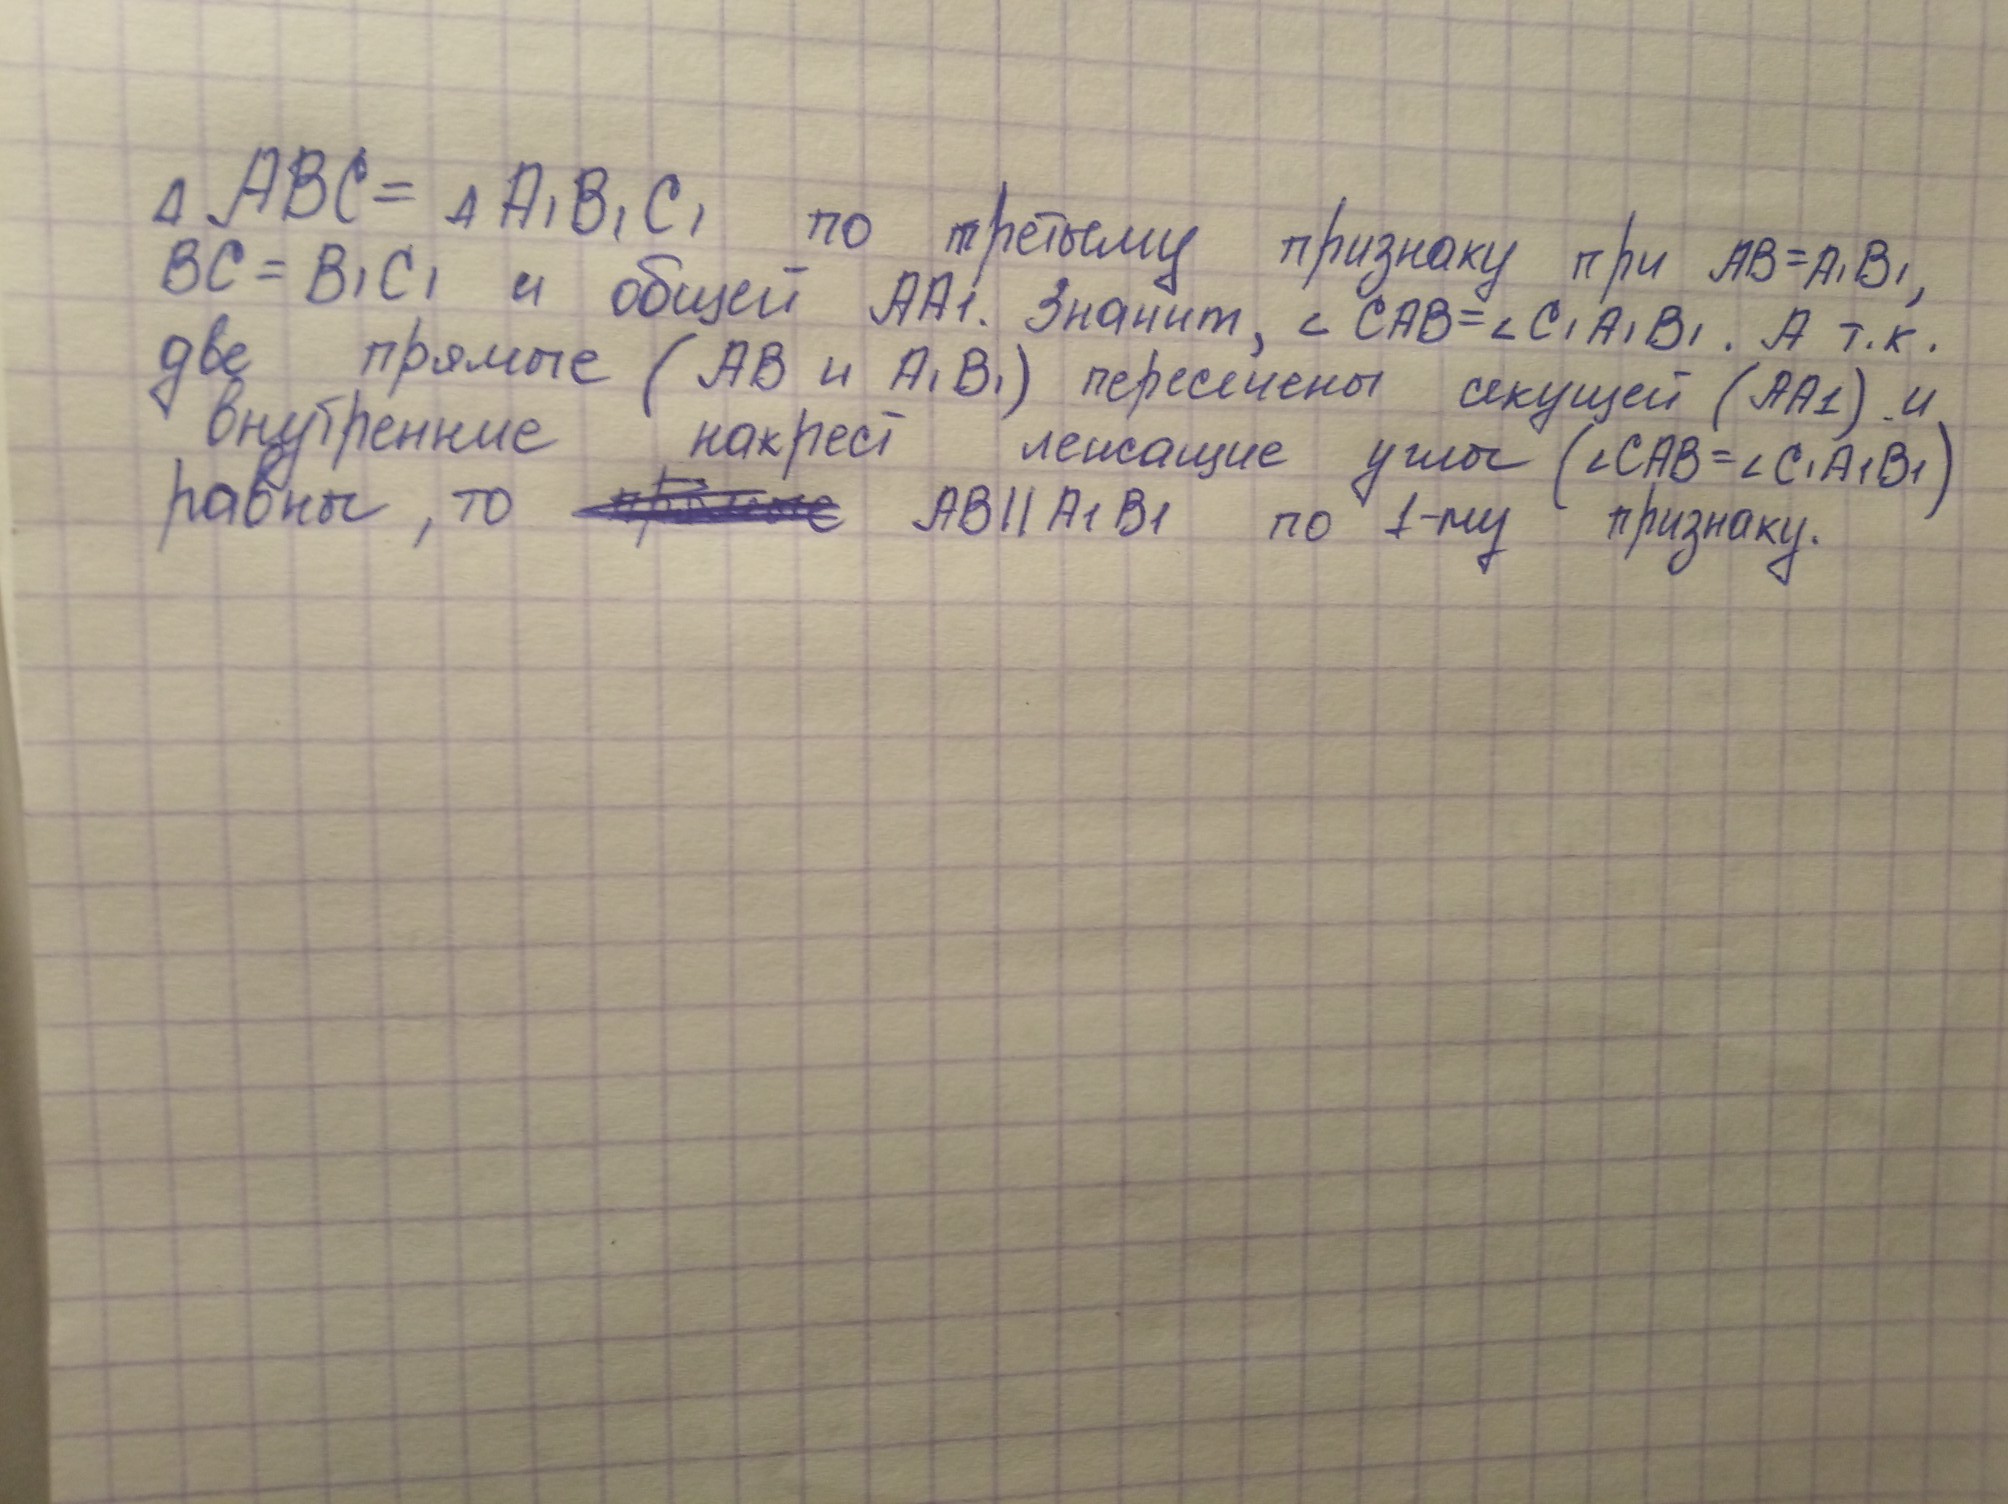 △ ABC = △ A₁B₁C₁ по третьему признаку при AB=A₁B₁,
BC = B₁C₁ и общей AA1. Значит, ∠CAB=∠C₁A₁B₁. А т.к.
две прямые (AB и A₁B₁) пересечены секущей (AA1) и
внутренние накрест лежащие углы (∠CAB=∠C₁A₁B₁)
равны, то прямые AB||A1B1 по 1-му признаку.